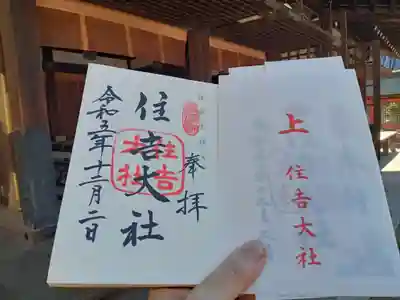 奉拝
住吉大社
住吉
大社
令和五年十二月二日
上
住吉大社